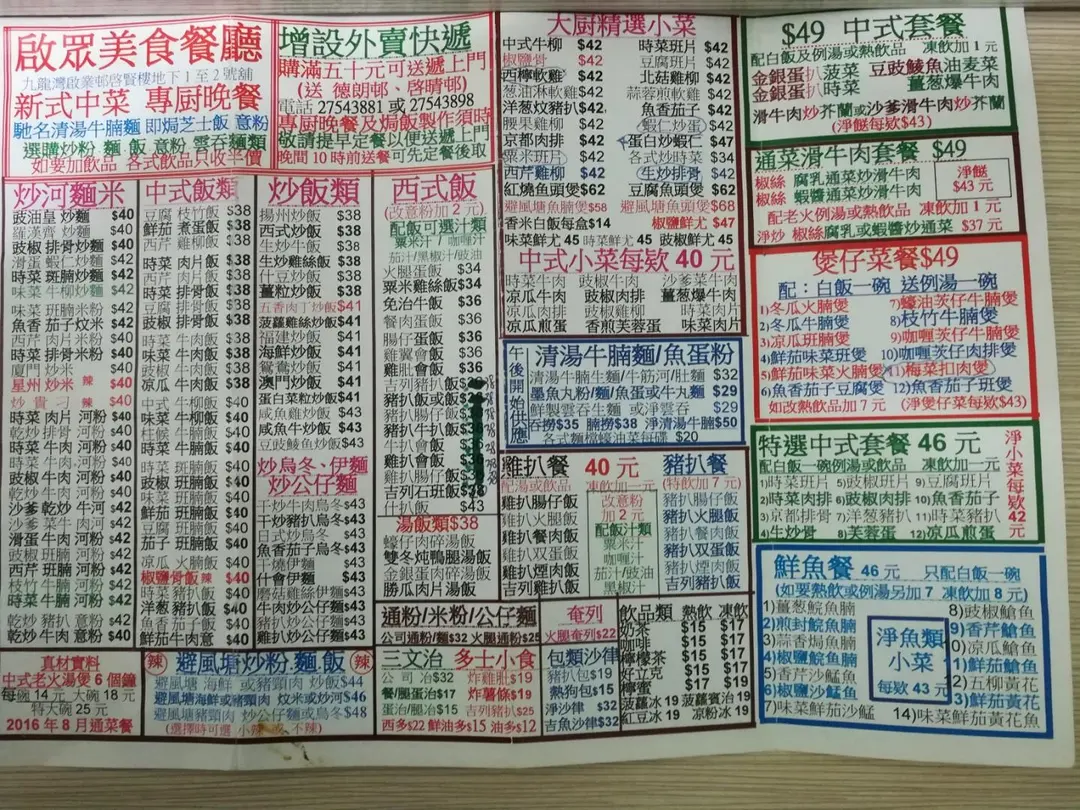 啟眾美食餐廳
九龍灣啟業邨啓賢樓地下1至2號舖
新式中菜 專厨晚餐
馳名清湯牛腩麵 即焗芝士飯 意粉
選購炒粉 麵 飯 意粉 雲吞麵類
如要加飲品 各式飲品只收半價
增設外賣快遞
購滿五十元可送遞上門
(送 德朗邨、啓晴邨)
電話 27543881 或 27543898
專厨晚餐及焗飯製作須時
敬請提早定餐以便送遞上門
晚間10時前送餐可先定餐後取
炒河麵米
豉油皇炒麵 $40
羅漢齋炒麵 $40
豉椒排骨炒麵 $40
滑蛋蝦仁炒麵 $42
時菜班腩炒麵 $42
味菜牛柳炒麵 $42
味菜班腩米粉 $42
魚香茄子炆米 $42
西芹肉片米粉 $40
時菜排骨米粉 $40
廈門炒米 $40
星州炒米 辣 $40
炒貴刁 辣 $40
時菜肉片河粉 $40
乾炒排骨河粉 $40
時菜牛肉河粉 $40
豉椒牛肉河粉 $40
乾炒牛肉河粉 $40
沙爹乾炒牛河 $42
沙爹菜牛肉河 $40
滑蛋牛肉河粉 $40
豉椒班腩河粉 $42
西芹班腩河粉 $42
枝竹牛腩河粉 $42
時菜牛腩河粉 $42
乾炒豬扒意粉 $42
乾炒牛肉意粉 $40
中式飯類
豆腐枝竹飯 $38
鮮茄煮蛋飯 $38
西芹雞柳飯 $38
時菜肉片飯 $38
西芹肉片飯 $38
時菜排骨飯 $38
豆腐排骨飯 $38
豉椒排骨飯 $38
時菜牛肉飯 $38
味菜牛肉飯 $38
豉椒牛肉飯 $38
凉瓜牛肉飯 $38
中式牛柳飯 $40
味菜牛柳飯 $40
柱候牛腩飯 $40
時菜牛腩飯 $40
時菜班腩飯 $40
豉椒班腩飯 $40
味菜班腩飯 $40
鮮茄班腩飯 $40
豆腐班腩飯 $40
茄子班腩飯 $40
凉瓜火腩飯 $40
椒鹽骨飯 辣 $40
時菜豬扒飯 $40
洋葱豬扒飯 $40
魚香茄子飯 $40
鮮茄牛肉意 $40
炒飯類
揚州炒飯 $38
西式炒飯 $38
生炒牛飯 $38
生炒雞絲飯 $38
什豆炒飯 $38
薑粒炒飯 $38
五香肉丁炒飯 $41
菠蘿雞絲炒飯 $41
福建炒飯 $41
海鮮炒飯 $41
鴛鴦炒飯 $41
澳門炒飯 $41
蛋白菜粒炒飯 $41
咸魚雞炒飯 $43
咸魚牛炒飯 $43
豆豉鯪魚炒飯 $43
炒烏冬、伊麵
炒公仔麵
干炒牛肉烏冬 $43
干炒豬扒烏冬 $43
日式炒烏冬 $43
魚香茄子烏冬 $43
干燒伊麵 $43
什會伊麵 $43
蘑菇雞絲伊麵 $43
牛肉炒公仔麵 $43
豬扒炒公仔麵 $43
雞扒炒公仔麵 $43
西式飯
(改意粉加2元)
配飯可選汁類
粟米汁 / 咖喱汁
茄汁/黑椒汁/豉油
火腿蛋飯 $34
粟米雞絲飯 $34
免治牛飯 $36
餐肉蛋飯 $36
腸仔蛋飯 $36
雞翼會飯 $36
雞肶會飯 $36
吉列豬扒飯
豬扒飯或意
豬扒腸仔飯
豬扒牛扒飯
牛扒會飯
雞扒會飯
雞扒腸仔飯
吉列石班飯
什扒飯 $43
湯飯類$38
蠔仔肉碎湯飯
雙冬炖鴨腿湯飯
金銀蛋肉碎湯飯
勝瓜肉片湯飯
大厨精選小菜
中式牛柳 $42
椒鹽骨 $42
西檸軟雞 $42
葱油淋軟雞 $42
洋葱炆豬扒 $42
腰果雞柳 $42
京都肉排 $42
粟米班片 $42
西芹雞柳 $42
紅燒魚頭煲 $62
避風塘魚腩煲 $58
香米白飯每盒 $14
味菜鮮尤 45 時菜鮮尤 45 豉椒鮮尤 45
時菜班片 $42
豆腐班片 $42
北菇雞柳 $42
蒜蓉煎軟雞 $42
魚香茄子 $42
蝦仁炒蛋 $42
蛋白炒蝦仁 $47
各式炒時菜 $34
生炒排骨 $42
豆腐魚頭煲 $62
避風塘魚頭煲 $68
椒鹽鮮尤 $47
中式小菜每欵 40 元
時菜牛肉 豉椒牛肉 沙爹菜牛肉
凉瓜牛肉 豉椒肉排 薑葱爆牛肉
凉瓜肉排 豉椒雞柳 時菜肉片
凉瓜煎蛋 香煎芙蓉蛋 味菜肉片
午後開始供應
清湯牛腩麵/魚蛋粉
清湯牛腩生麵/牛筋河/肚麵 $32
墨魚丸粉/麵/魚蛋或牛丸麵 $29
鮮製雲吞生麵 或淨雲吞 $29
吞撈$35 腩撈$38 淨清湯牛腩$50
各式麵檔蠔油菜每碟 $20
雞扒餐 40 元 豬扒餐
配湯或飲品 凍飲加一元 (特飲加7元)
雞扒腸仔飯
雞扒火腿飯
雞扒餐肉飯
雞扒双蛋飯
雞扒煙肉飯
吉列雞扒飯
改意粉
加2元
配飯汁類
粟米汁
咖喱汁
茄汁/豉油
黑椒汁
豬扒腸仔飯
豬扒火腿飯
豬扒餐肉飯
豬扒双蛋飯
豬扒煙肉飯
吉列豬扒飯
$49 中式套餐
配白飯及例湯或熱飲品 凍飲加1元
金銀蛋扒菠菜 豆豉鯪魚油麥菜
金銀蛋扒時菜 薑葱爆牛肉
滑牛肉炒芥蘭或沙爹滑牛肉炒芥蘭
(淨餸每欵$43)
通菜滑牛肉套餐 $49
椒絲 腐乳通菜炒滑牛肉
椒絲 蝦醬通菜炒滑牛肉
淨餸
$43 元
配老火例湯或熱飲品 凍飲加1元
淨炒 椒絲腐乳或蝦醬炒通菜 $37 元
煲仔菜餐$49
配：白飯一碗 送例湯一碗
1)冬瓜火腩煲 7)蠔油茨仔牛腩煲
2)冬瓜牛腩煲 8)枝竹牛腩煲
3)凉瓜班腩煲 9)咖喱茨仔牛腩煲
4)鮮茄味菜班煲 10)咖喱茨仔肉排煲
5)鮮茄味菜火腩煲 11)梅菜扣肉煲
6)魚香茄子豆腐煲 12)魚香茄子班煲
如改熱飲品加7元 (淨煲仔菜每欵$43)
特選中式套餐 46 元
配白飯一碗例湯或飲品 凍飲加一元
1)時菜班片 5)豉椒班片 9)豆腐班片
2)時菜肉排 6)豉椒肉排 10)魚香茄子
3)京都排骨 7)洋葱豬扒 11)時菜豬扒
4)生炒骨 8)芙蓉蛋 12)凉瓜煎蛋
淨小菜每欵 42 元
鮮魚餐 46 元 只配白飯一碗
(如要熱飲或例湯另加7元 凍飲加8元)
1)薑葱鯇魚腩
2)煎封鯇魚腩
3)蒜香焗魚腩
4)椒鹽鯇魚腩
5)香芹沙鯭魚
6)椒鹽沙鯭魚
7)味菜鮮茄沙鯭
淨魚類
小菜
每欵 43 元
8)豉椒鯧魚
9)香芹鯧魚
10)凉瓜鯧魚
11)鮮茄鯧魚
12)五柳黃花
13)鮮茄黃花
14)味菜鮮茄黃花魚
真材實料
中式老火湯煲6個鐘
每碗 14 元 大碗 18 元
特大碗 25 元
2016 年 8 月通菜餐
(辣) 避風塘炒粉.麵.飯 (辣)
避風塘海鮮 或豬頸肉 炒飯$44
避風塘海鮮或豬頸肉 炆米或炒河$46
避風塘豬頸肉 炒公仔麵或烏冬$48
(選擇時可選 小辣 或 不辣)
通粉/米粉/公仔麵
公司通粉/麵$32 火腿通粉$25
奄列
火腿奄列$22
三文治 多士小食
公司治$32 炸雞肶$19
餐/腿蛋治$17 炸薯條$19
蛋治/腿治$15 吉列豬扒$25
西多$22 鮮油多$15 油多$12
包類沙律
豬扒包$19
熱狗包$15
淨沙律 $32
吉魚沙律$32
飲品類 熱飲 凍飲
奶茶 $15 $17
咖啡 $15 $17
檸檬茶 $15 $17
好立克 $15 $17
檸蜜 $17 $19
菠蘿冰 19 菠蘿賓治19
紅豆冰 19 凉粉冰 19